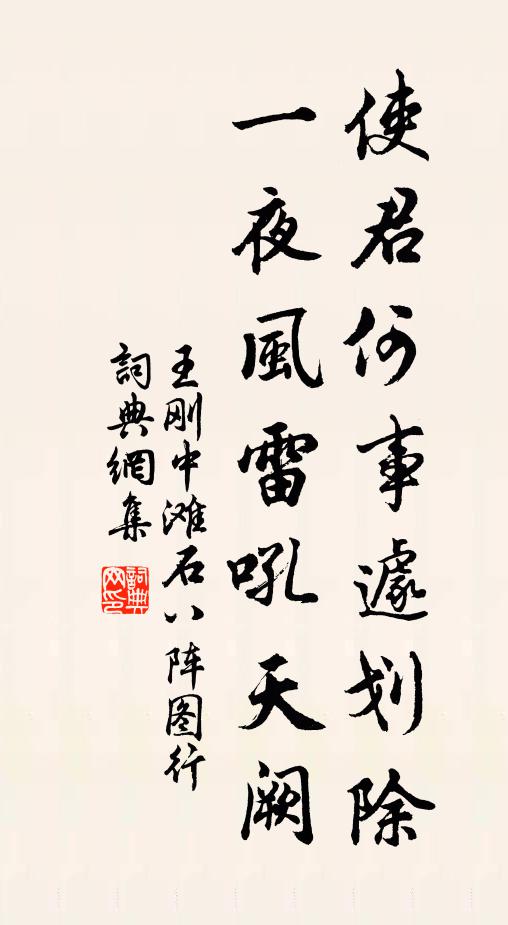 使君何事遽划除
一夜風雷吼天阙
王刚中滩石八阵图行
詞典網集
詞典网印